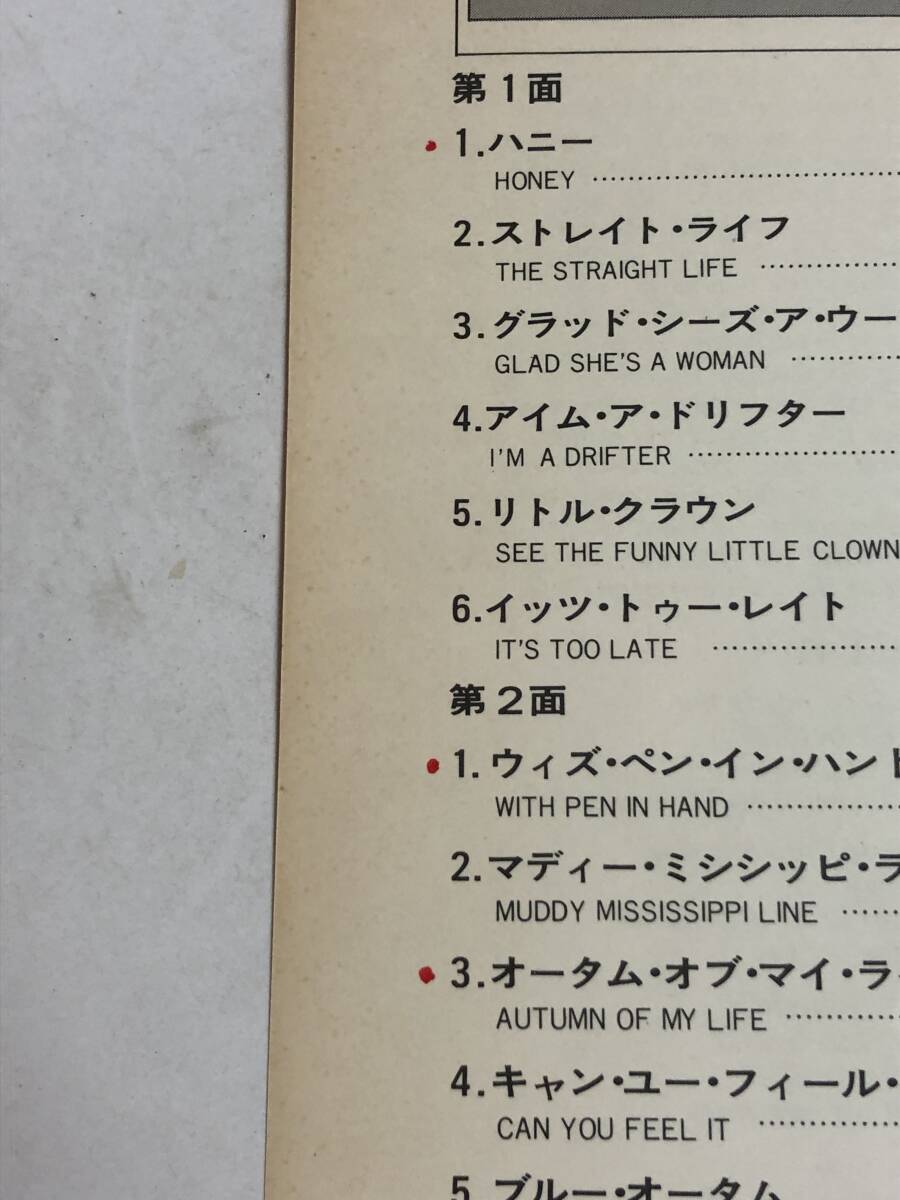 第1面
1.ハニー
HONEY
2.ストレイト・ライフ
THE STRAIGHT LIFE
3.グラッド・シーズ・ア・ウー
GLAD SHE'S A WOMAN
4.アイム・ア・ドリフター
I'M A DRIFTER
5.リトル・クラウン
SEE THE FUNNY LITTLE CLOWN
6.イッツ・トゥー・レイト
IT'S TOO LATE
第2面
1.ウィズ・ペン・イン・ハンド
WITH PEN IN HAND
2.マディー・ミシシッピ・ラ
MUDDY MISSISSIPPI LINE
3.オータム・オブ・マイ・ライ
AUTUMN OF MY LIFE
4.キャン・ユー・フィール・
CAN YOU FEEL IT
5.ブルー・オータム